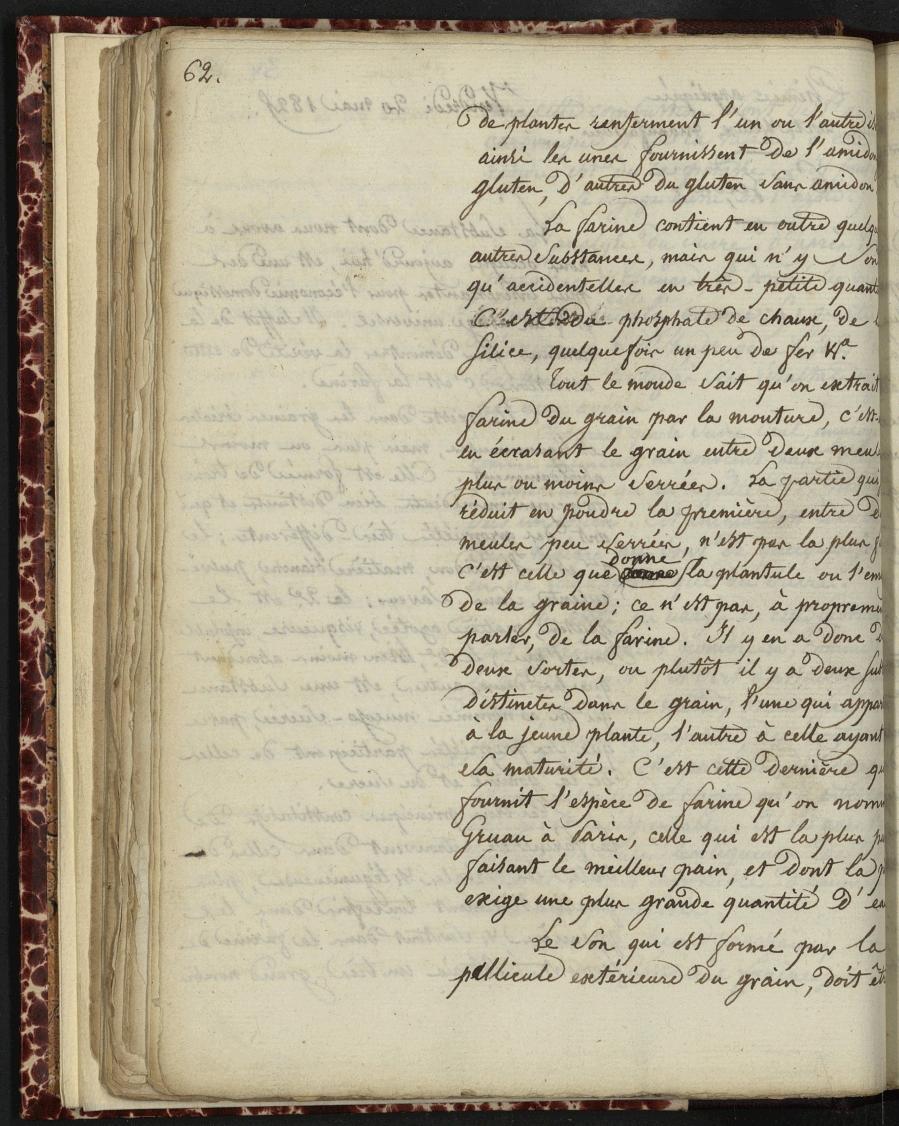 62.
de plantes renferment l'un ou l'autre
ainsi les unes fournissent de l'amidon
gluten, d'autres du gluten sans amidon
La farine contient en outre quelq
autres substances, mais qui n'y son
qu'accidentelles en très-petite quant
C'est du phosphate de chaux, de
silice, quelquefois un peu de fer &a.
Tout le monde sait qu'on extrait
farine du grain par la mouture, c'est-
en écrasant le grain entre deux meu
plus ou moins serrées. La partie qui
réduit en poudre la première, entre d
meules peu serrées, n'est pas la plus
donne
C'est celle que la plantule ou l'em
de la graine; ce n'est pas, à propreme
parler, de la farine. Il y en a donc d
deux sortes, ou plutôt il y a deux sub
distinctes dans le grain, l'une qui appar
à la jeune plante, l'autre à celle ayant
sa maturité. C'est cette dernière qu
fournit l'espèce de farine qu'on nom
Gruau à Paris, celle qui est la plus p
faisant le meilleur pain, et dont la p
exige une plus grande quantité d'ea
Le son qui est formé par la
pellicule extérieure du grain, doit êt